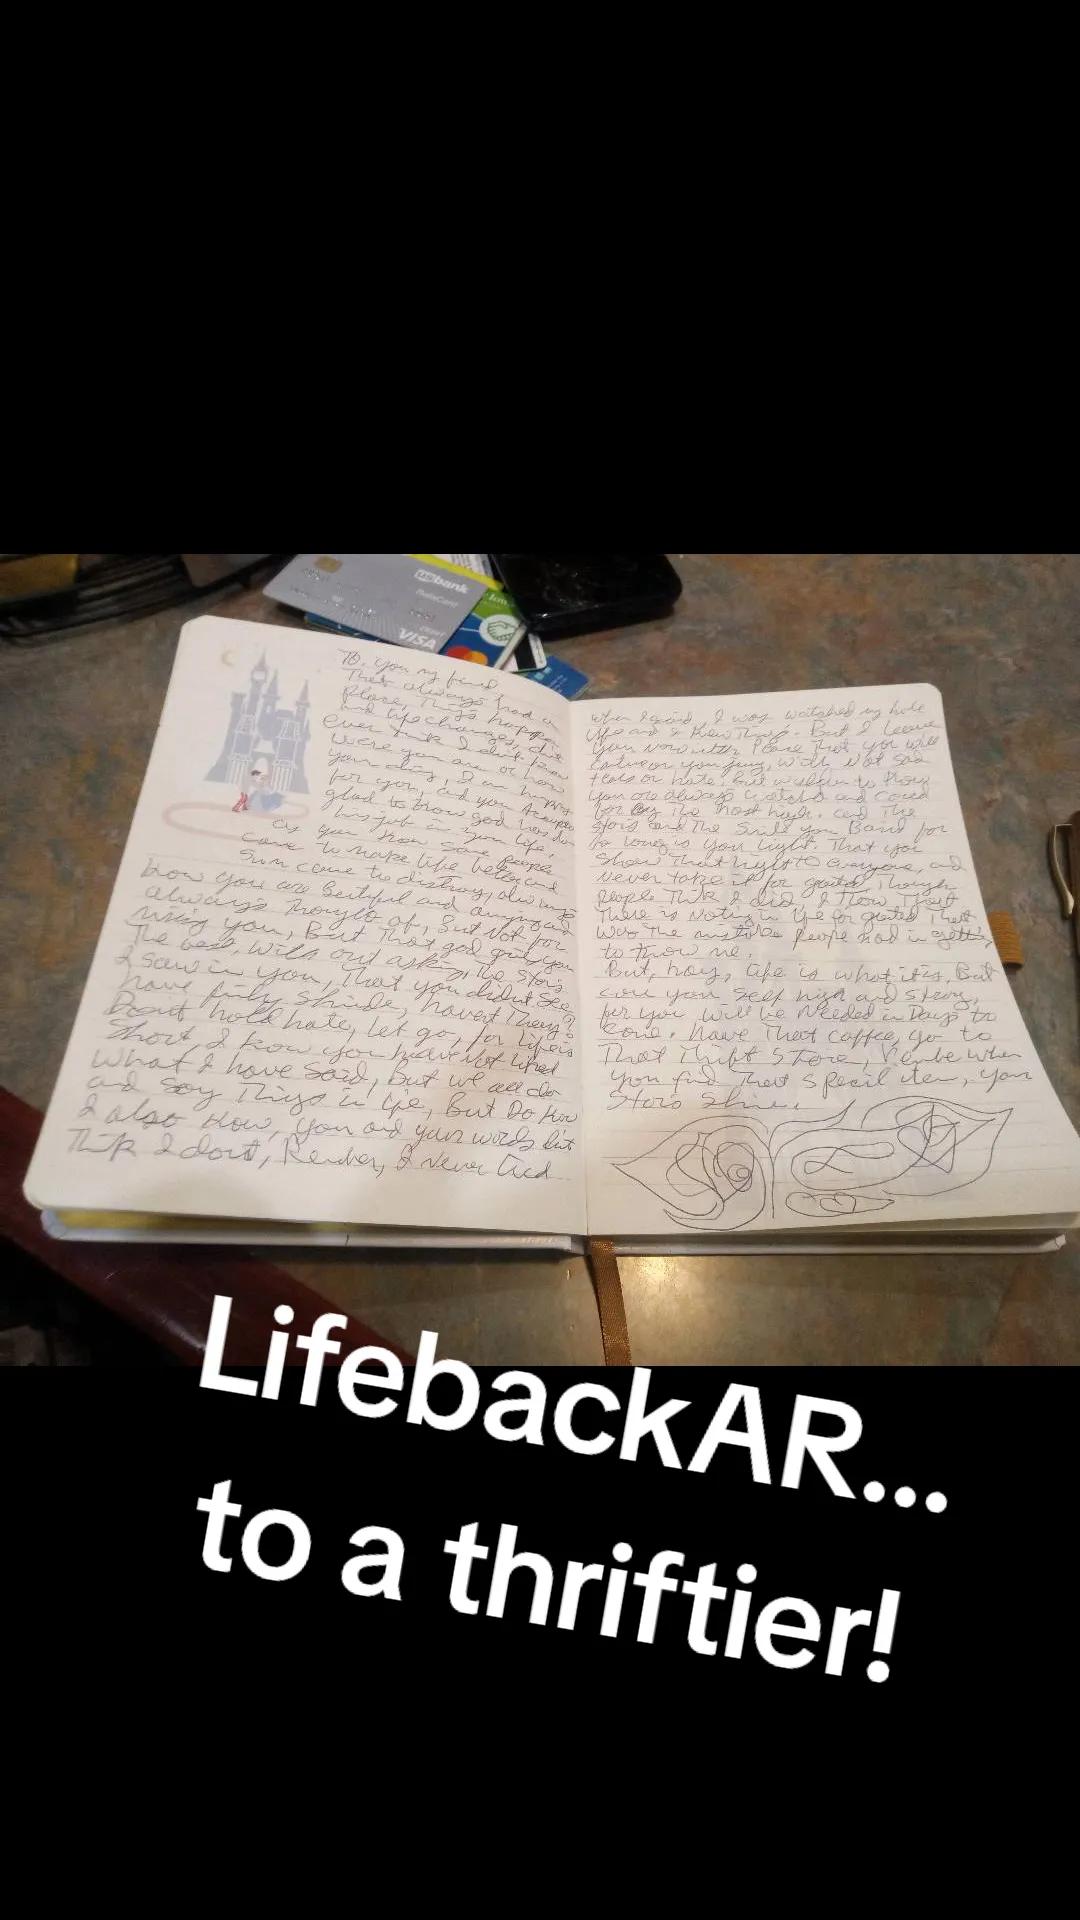 usbank
ReliaCard
VISA
To. you my fiend
That always had a
place, Things happen
and life changes, dit
ever think I didt know
were you are or how
your doing, I am happy
for you, and you
glad to know god has
his job in your life,
as you know some people
come to make life better and
sum come to distroy, always
know you are beitiful and amazing and
always thought of, But Not for
using you, But that god give you
The best, with out asking, The stors
I saw in you, That you didnt see
have finly shinde, havent They?
Don't hold hate, let go, for Life is
short, I know you have Not liked
what I have said, But we all do
and say Things in life, But Do know
I also know, you and your words but
Think I dont, I Never lied
when I said, I was watched my hole
life and I knew Things. But I leave
you Now with Peace That you will
on your jurny, with Not sad
tears or hate, but wisdom to know
you are always watched and cared
for by The most high. and The
stors and The Smile you
so long is your Light. That you
show That light to everyone, and
Never take it for grated, Though
people Think I did, I know That
There is Noting in life for grated That
was The mistake people had in getting
to know me.
But, hay, life is what it is. But
care your self high and strong,
for you will be Needed in Days to
come. have That coffee, go to
That Thift store, when
you find That specil item, your
Stors Shine.
LifebackAR...
to a thriftier!